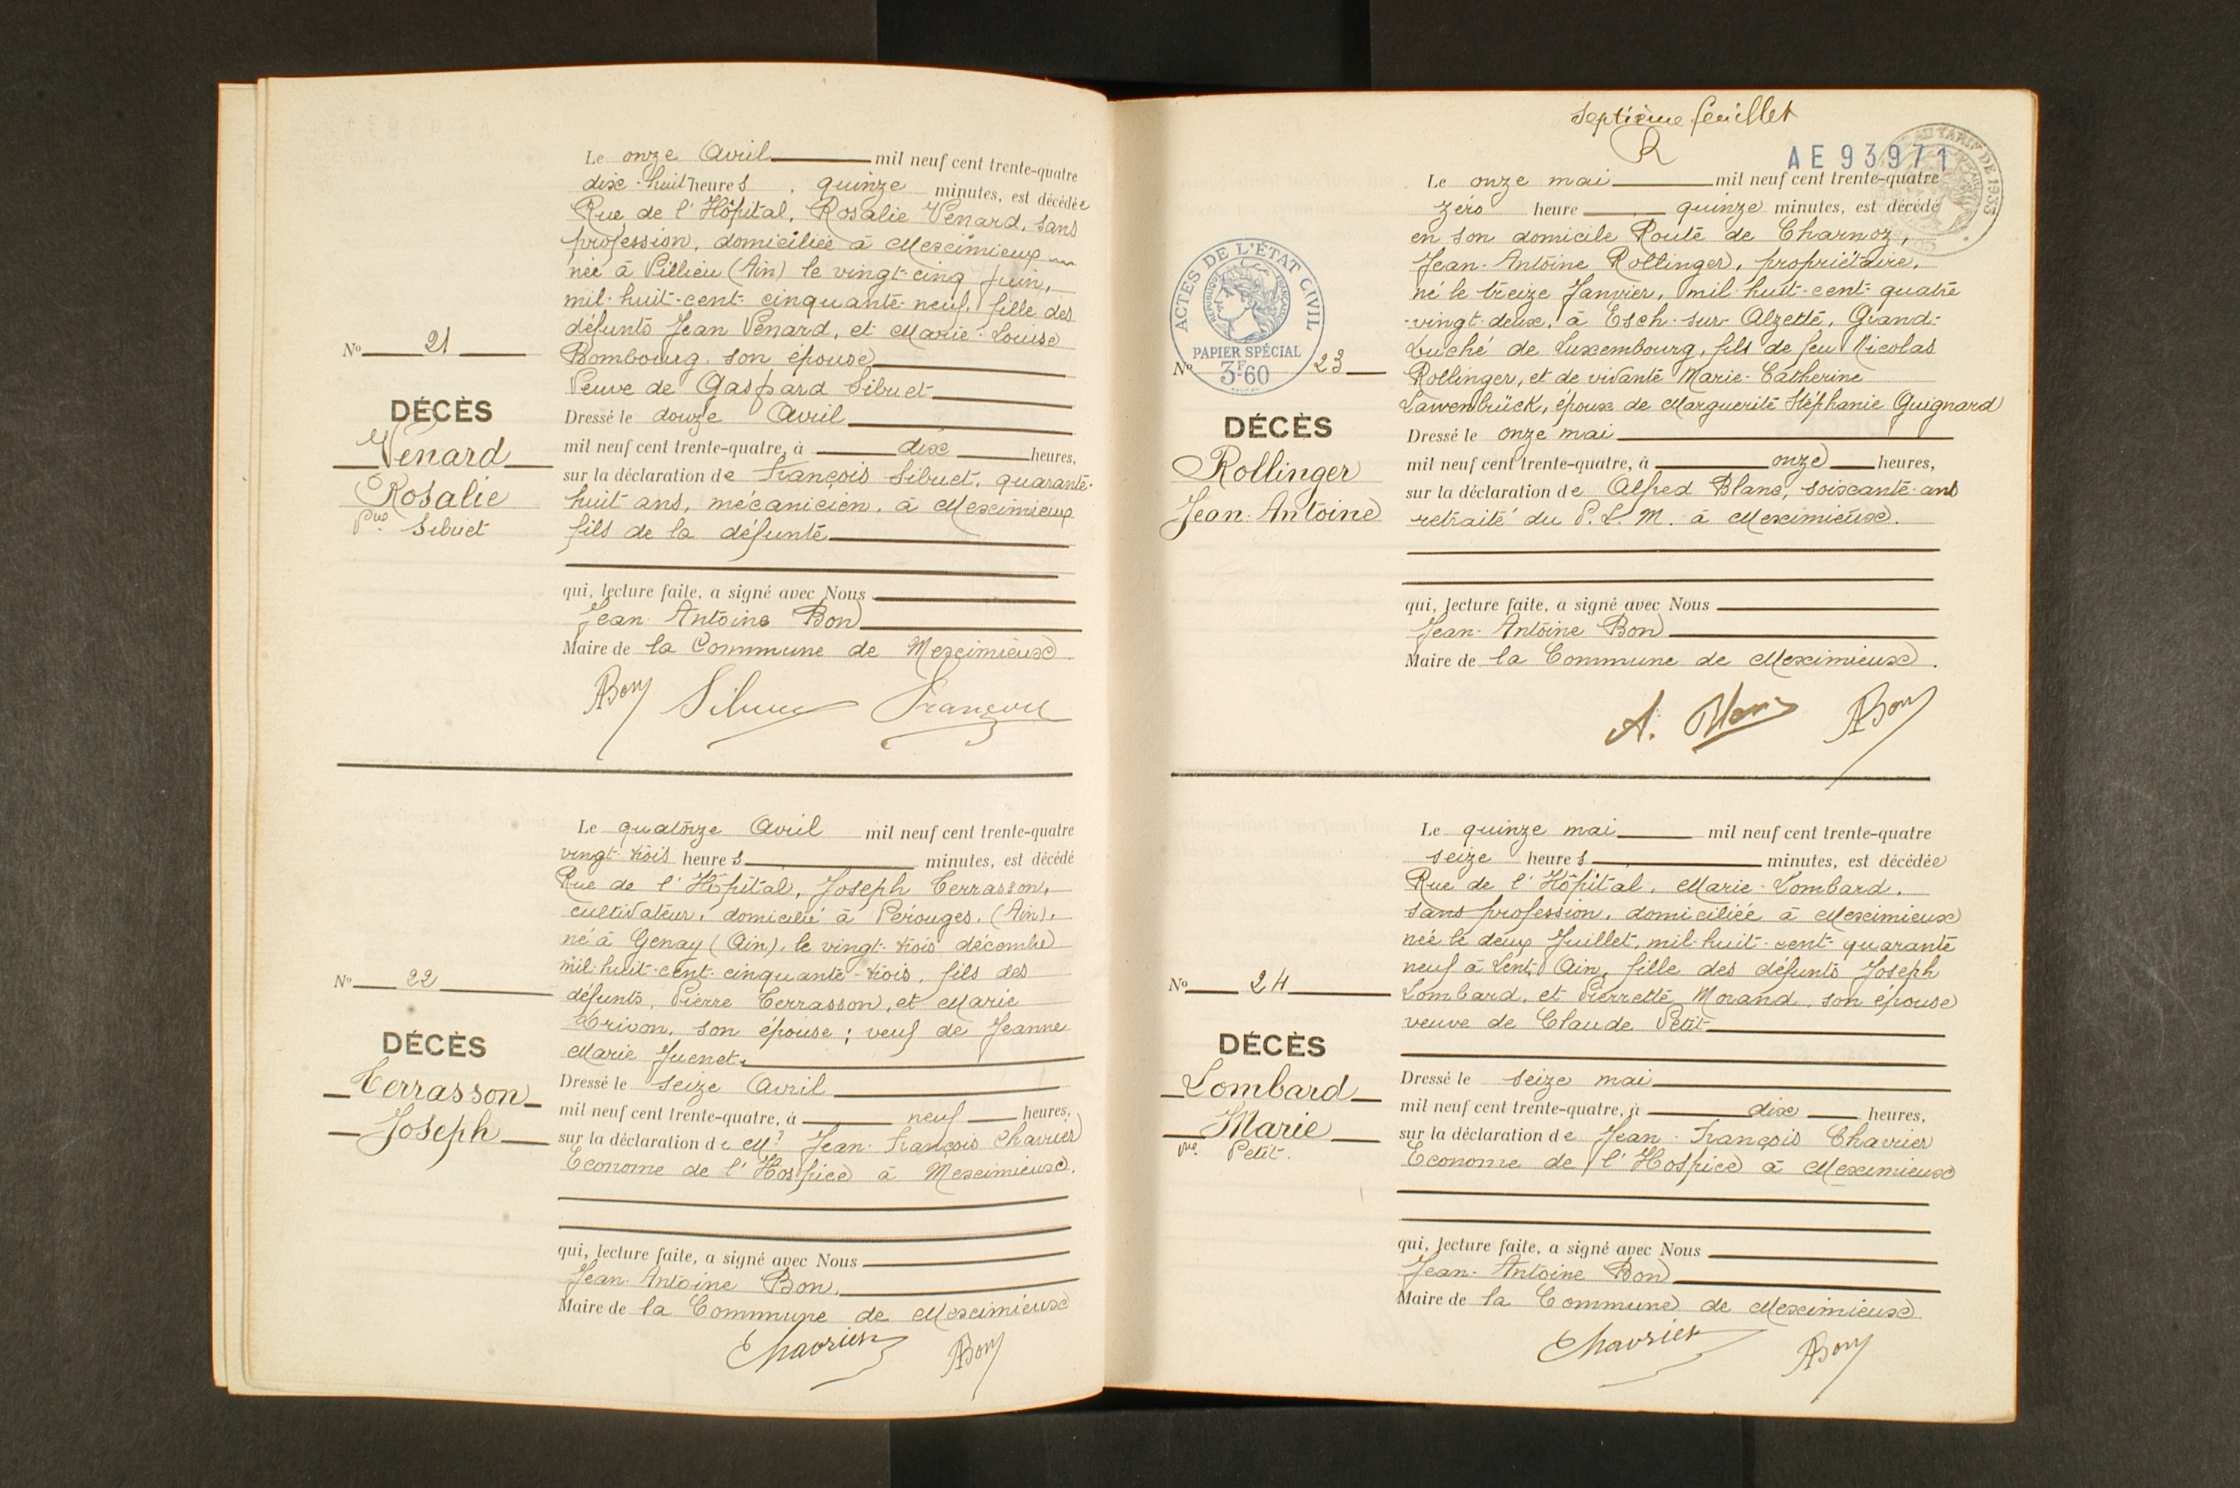 Le onze Avril mil neuf cent trente-quatre
dix-huit heures, quinze minutes, est décédée
Rue de l'Hôpital, Rosalie Venard, sans
profession, domiciliée à Meximieux
née à Villieu (Ain) le vingt-cinq Juin,
mil-huit-cent-cinquante-neuf, fille des
défunts Jean Venard, et Marie-Louise
Bombourg son épouse
Veuve de Gaspard Sibuet
Nº 21
DÉCÈS
Venard
Rosalie
Vve Sibuet
Dressé le douze Avril
mil neuf cent trente-quatre, à dix heures,
sur la déclaration de François Sibuet, quarante-
huit ans, mécanicien, à Meximieux
fils de la défunte
qui, lecture faite, a signé avec Nous
Jean-Antoine Bon
Maire de la Commune de Meximieux.
ABon Sibuet François
Le quatorze Avril mil neuf cent trente-quatre
vingt-trois heures minutes, est décédé
Rue de l'Hôpital, Joseph Terrasson,
cultivateur, domicilié à Pérouges, (Ain),
né à Genay (Ain), le vingt-trois décembre
mil-huit-cent-cinquante-trois, fils des
défunts, Pierre Terrasson, et Marie
son épouse; veuf de Jeanne
Marie Juenet.
Nº 22
DÉCÈS
Terrasson
Joseph
Dressé le seize Avril
mil neuf cent trente-quatre, à neuf heures,
sur la déclaration de Mr Jean-François Chavrier
Econome de l'Hospice à Meximieux.
qui, lecture faite, a signé avec Nous
Jean-Antoine Bon,
Maire de la Commune de Meximieux
Chavrier ABon
septième feuillet
R
AE 93971
AU TARIF DE 1933
Le onze mai mil neuf cent trente-quatre
zéro heure quinze minutes, est décédé
en son domicile Route de Charnoz,
Jean-Antoine Rollinger, propriétaire,
né le treize Janvier, mil-huit-cent-quatre
-vingt-deux, à Esch-sur-Alzette, Grand-
Duché de Luxembourg, fils de feu Nicolas
Rollinger, et de vivante Marie-Catherine
Lawenbrück, époux de Marguerite Stéphanie Guignard
ACTES DE L'ÉTAT CIVIL
RÉPUBLIQUE FRANÇAISE
PAPIER SPÉCIAL
3F60
Nº 23
DÉCÈS
Rollinger
Jean-Antoine
Dressé le onze mai
mil neuf cent trente-quatre, à onze heures,
sur la déclaration de Alfred Blanc, soixante-ans
retraité du P.L.M. à Meximieux.
qui, lecture faite, a signé avec Nous
Jean-Antoine Bon
Maire de la Commune de Meximieux.
A. Blanc ABon
Le quinze mai mil neuf cent trente-quatre
seize heures minutes, est décédée
Rue de l'Hôpital, Marie-Lombard,
sans profession, domiciliée à Meximieux
née le deux Juillet, mil-huit-cent-quarante
neuf à Lent, Ain, fille des défunts Joseph
Lombard, et Pierrette Morand, son épouse
veuve de Claude Petit
Nº 24
DÉCÈS
Lombard
Marie
Vve Petit.
Dressé le seize mai
mil neuf cent trente-quatre, à dix heures,
sur la déclaration de Jean-François Chavrier
Econome de l'Hospice à Meximieux
qui, lecture faite, a signé avec Nous
Jean-Antoine Bon
Maire de la Commune de Meximieux
Chavrier ABon